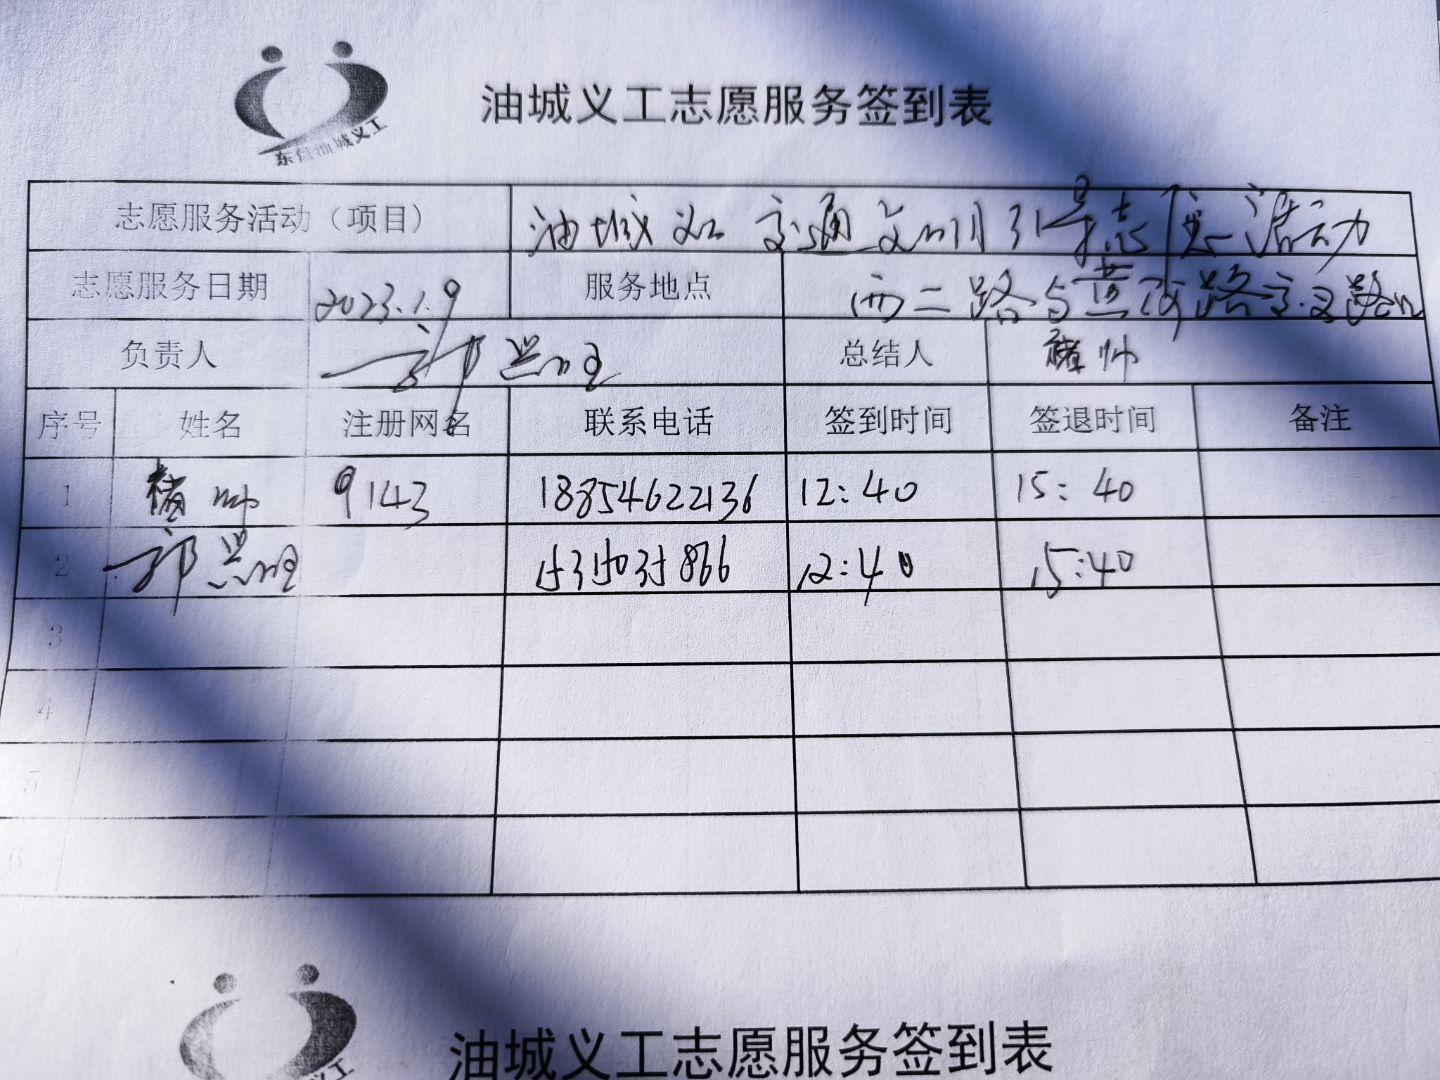 东营油城义工
油城义工志愿服务签到表
志愿服务活动（项目） 油城义工交通文明引导志愿活动
志愿服务日期 2023.1.9 服务地点 西二路与黄河路交叉路口
负责人 郭 总结人 褚帅
序号 姓名 注册网名 联系电话 签到时间 签退时间 备注
1 褚帅 9143 18854622136 12:40 15:40
2 郭 15315035866 12:40 15:40
3
4
5
6
油城义工志愿服务签到表